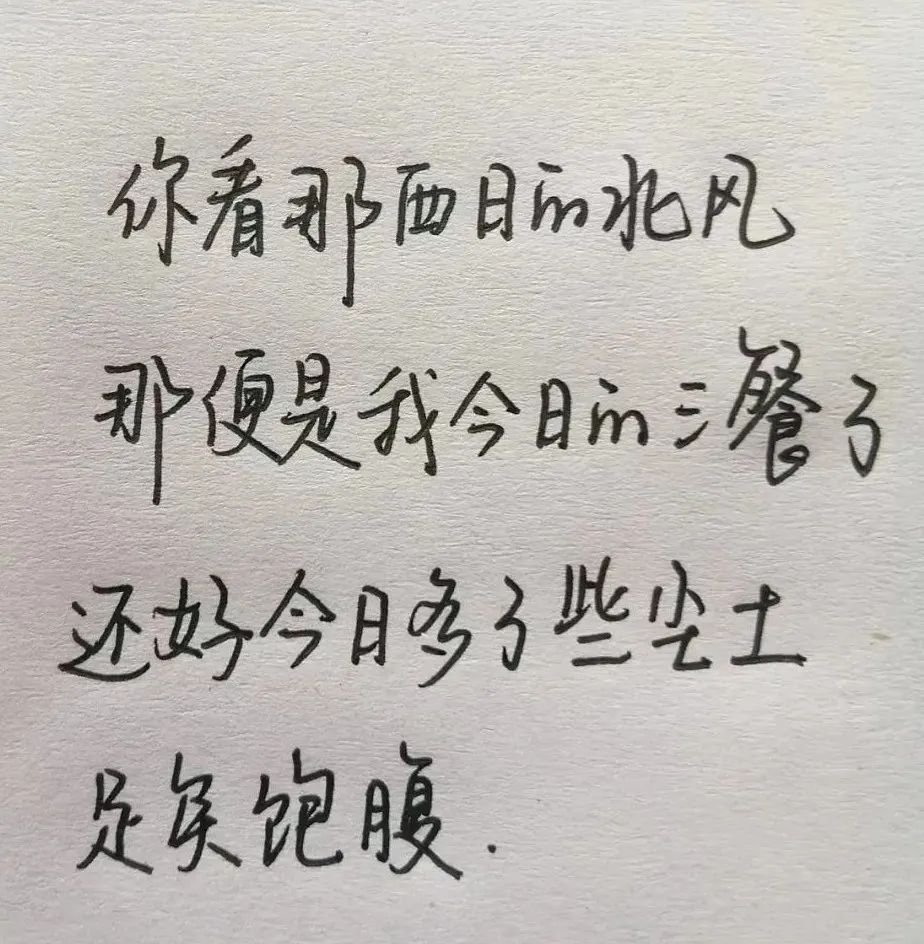 你看那西日的北风
那便是我今日的三餐了
还好今日多了些尘土
足矣饱腹.